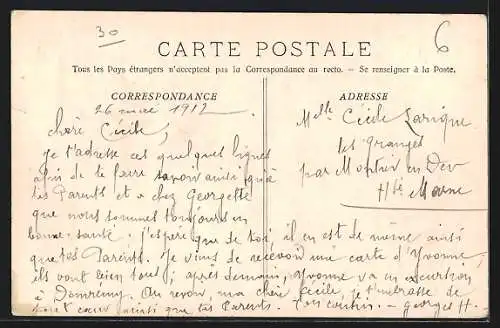 30
6
CARTE POSTALE
Tous les Pays étrangers n'acceptent pas la Correspondance au recto. — Se renseigner à la Poste.
CORRESPONDANCE
26 mai 1912
chère Cécile,
je t'adresse ces quelques lignes
afin de te faire savoir ainsi qu'à
tes Parents et a chez Georgette
que nous sommes toujours en
bonne santé. J'espère que de toi, il en est de même ainsi
que tes Parents. Je viens de recevoir une carte d'Yvonne,
ils vont bien tous ; après demain, Yvonne va en excursion
à Domremy. Au revoir, ma chère Cécile, je t'embrasse de
tout cœur ainsi que tes Parents. Ton cousin. — Georges H.
ADRESSE
Melle Cécile
les Granges
par Montier en Der
Hte Marne